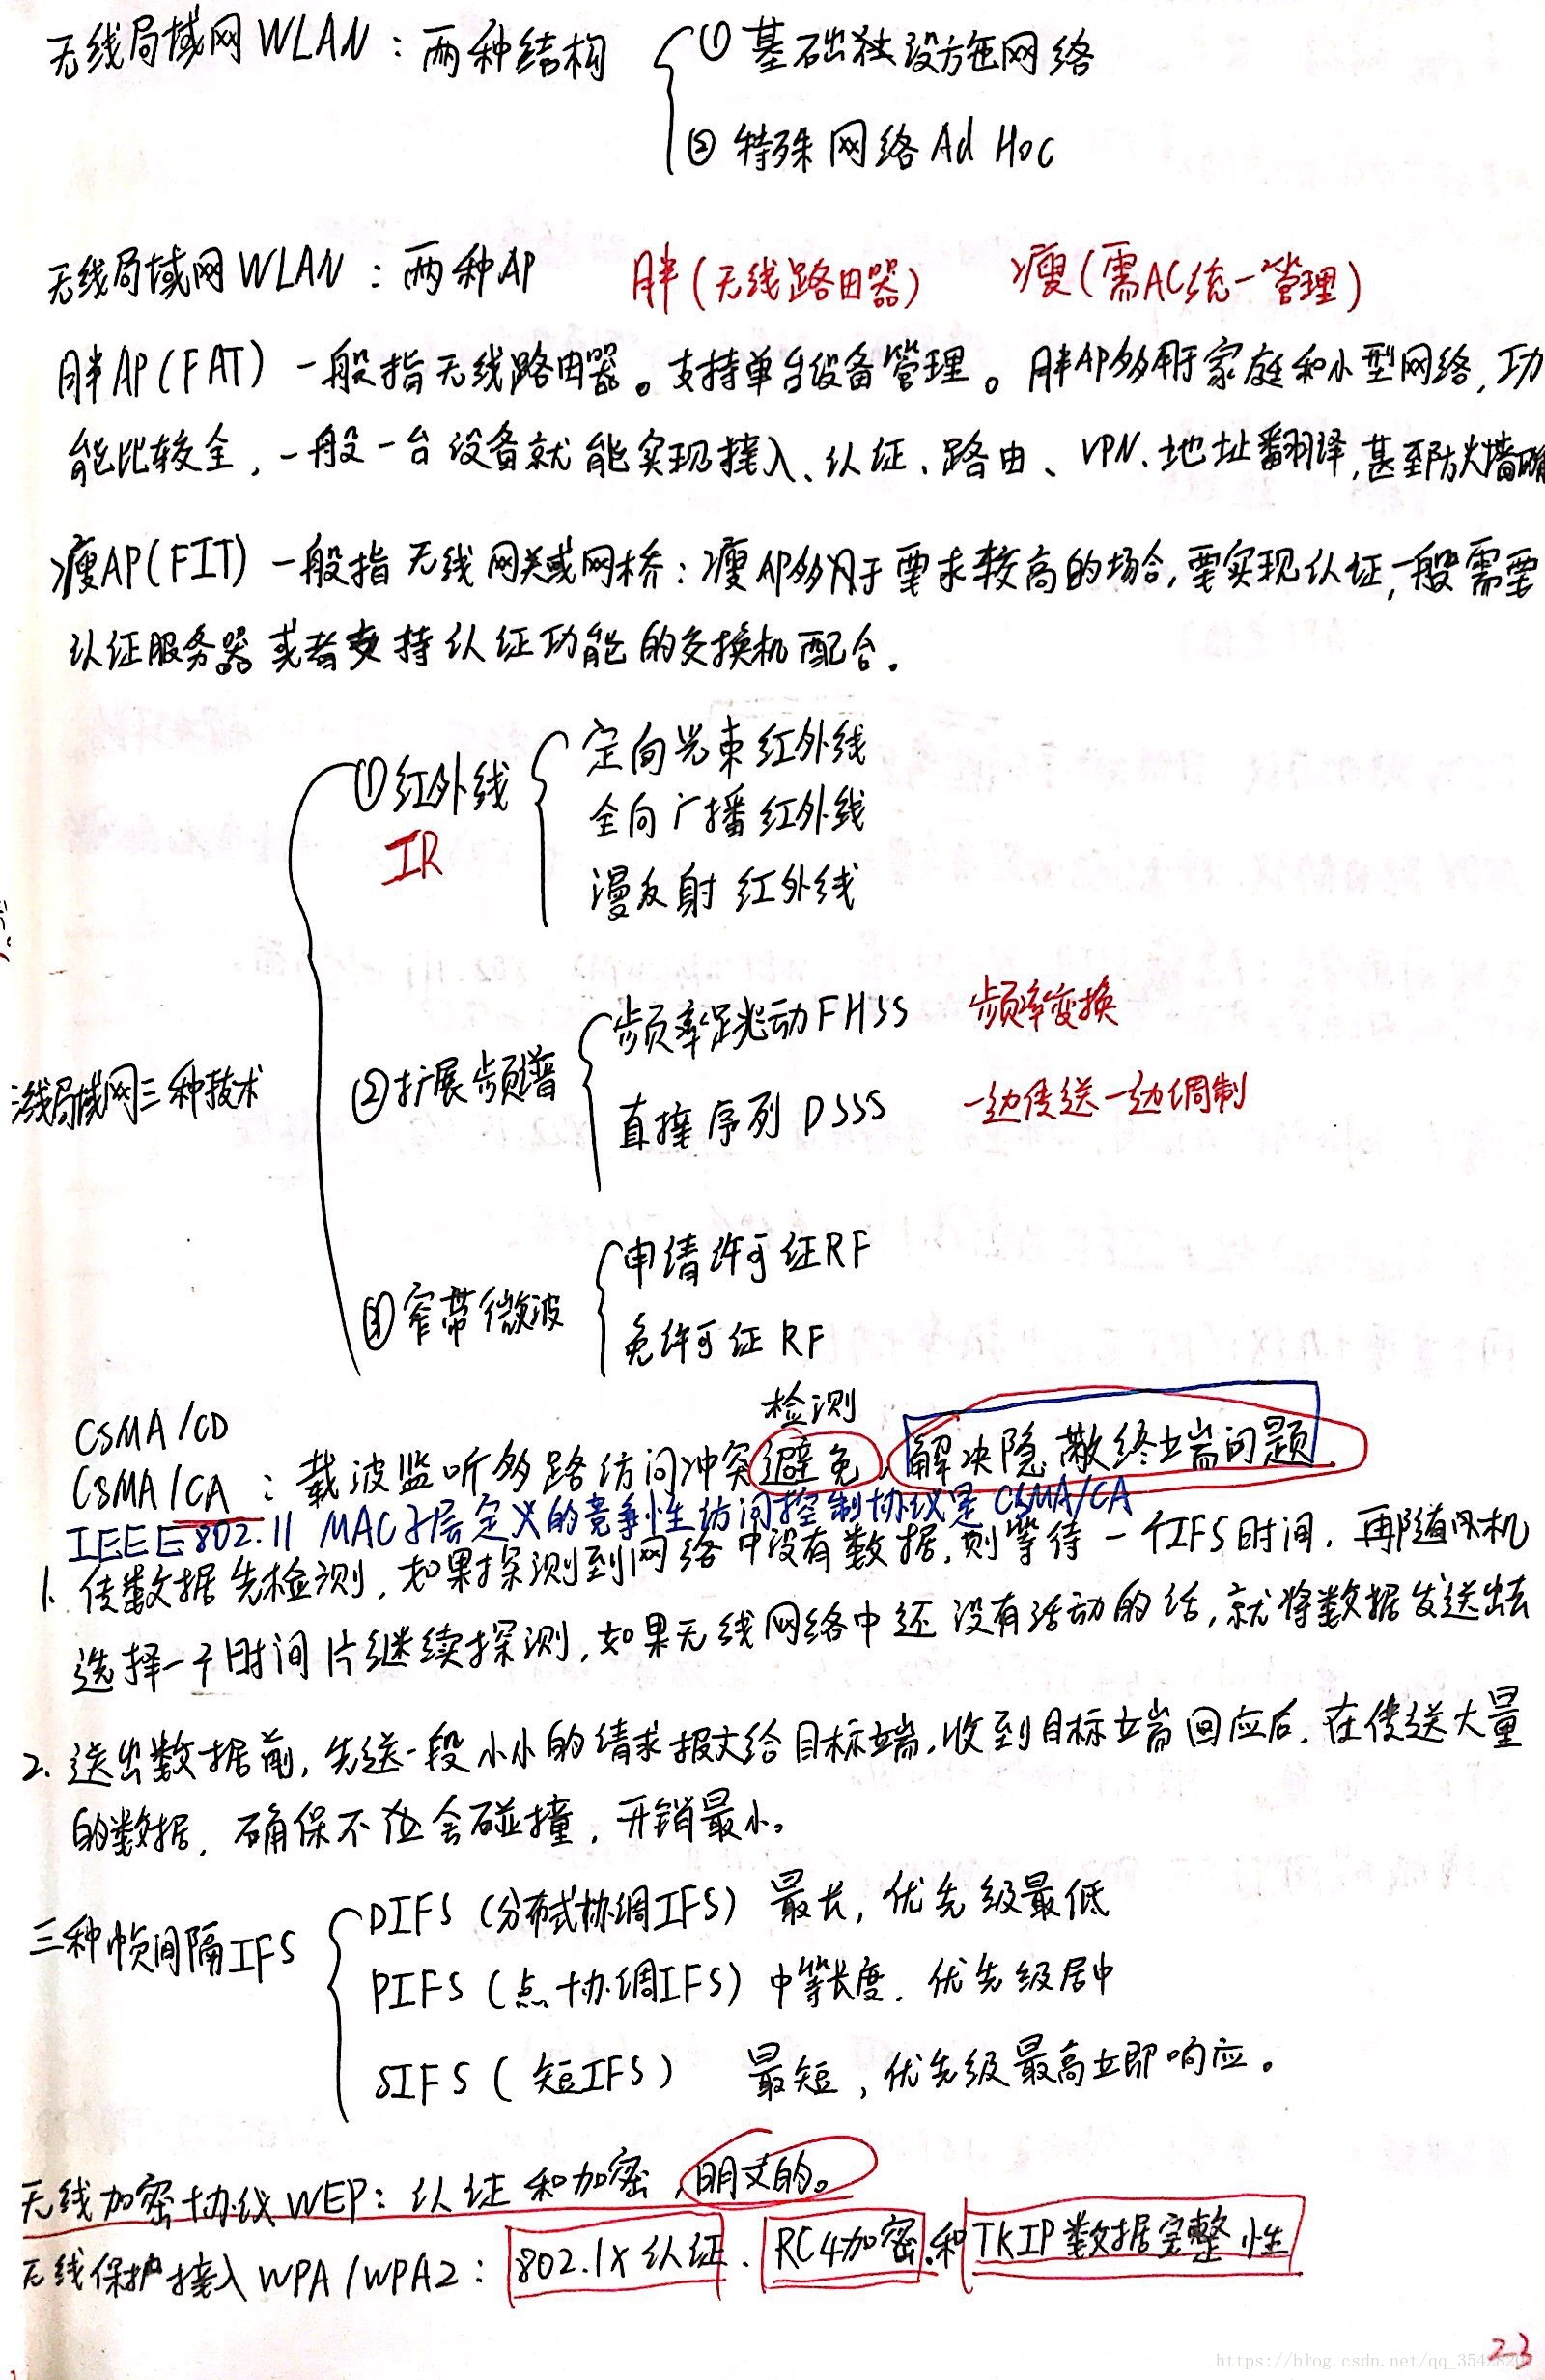 无线局域网WLAN：两种结构 ①基础设施网络
②特殊网络Ad Hoc
无线局域网WLAN：两种AP 胖(无线路由器) 瘦(需AC统一管理)
胖AP(FAT)一般指无线路由器。支持单台设备管理。胖AP多用于家庭和小型网络,功
能比较全,一般一台设备就能实现接入、认证、路由、VPN、地址翻译,甚至防火墙
瘦AP(FIT)一般指无线网关或网桥：瘦AP多用于要求较高的场合,要实现认证,一般需要
认证服务器或者支持认证功能的交换机配合。
定向光束红外线
①红外线
全向广播红外线
IR
漫反射红外线
频率跳动FHSS 频率变换
线局域网三种技术 ②扩展频谱
直接序列DSSS 一边传送一边调制
申请许可证RF
③窄带微波
免许可证RF
检测
CSMA/CD
CSMA/CA：载波监听多路访问冲突避免、解决隐蔽终端问题.
IEEE802.11 MAC子层定义的竞争性访问控制协议是CSMA/CA
1. 传数据先检测,如果探测到网络中没有数据,则等待一个IFS时间,再随机
选择一个时间片继续探测,如果无线网络中还没有活动的话,就将数据发送出去
2. 送出数据前,先送一段小小的请求报文给目标端,收到目标端回应后,在传送大量
的数据,确保不会碰撞,开销最小。
DIFS (分布式协调IFS) 最长,优先级最低
三种帧间隔IFS
PIFS (点协调IFS) 中等长度,优先级居中
SIFS (短IFS) 最短,优先级最高立即响应。
无线加密协议WEP：认证和加密,明文的。
无线保护接入WPA/WPA2：802.1X认证、RC4加密和TKIP数据完整性
23
https://blog.csdn.net/qq_35428201